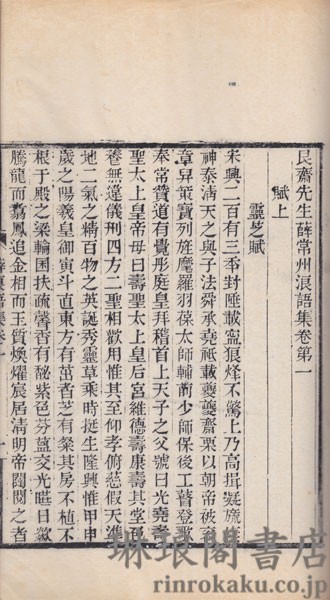 艮齋先生薛常州浪語集卷第一
賦上
靈芝賦
宋興二百有三季封陲載謐狼烽不驚上乃高揖凝旒
神泰淸天之與子法舜承堯祗載夔夔齋栗以朝帝被
章昇策寶列旌麾羅羽葆太師輔前少師保後工瞽登歌
奉常贊道有覺彤庭皇拜稽首上天子之父號曰光堯
聖太上皇帝母曰壽聖太上皇后宮維德壽康壽其堂
卷無違儀刑四方二聖相歡用惟其至仰孝俯慈假天
地二氣之精百物之英誕秀靈草乘時挺生隆興惟甲申
歲之陽羲皇御寅斗直東方有茁者芝有粲其房不植不
根于殿之梁輪囷扶疏馨香有馝紫色芬蒀交光眰日欻
騰龍而翥鳳追金相而玉質煥燿宸居淸明帝閱閱之者
琳琅閣書店
rinrokaku.co.jp